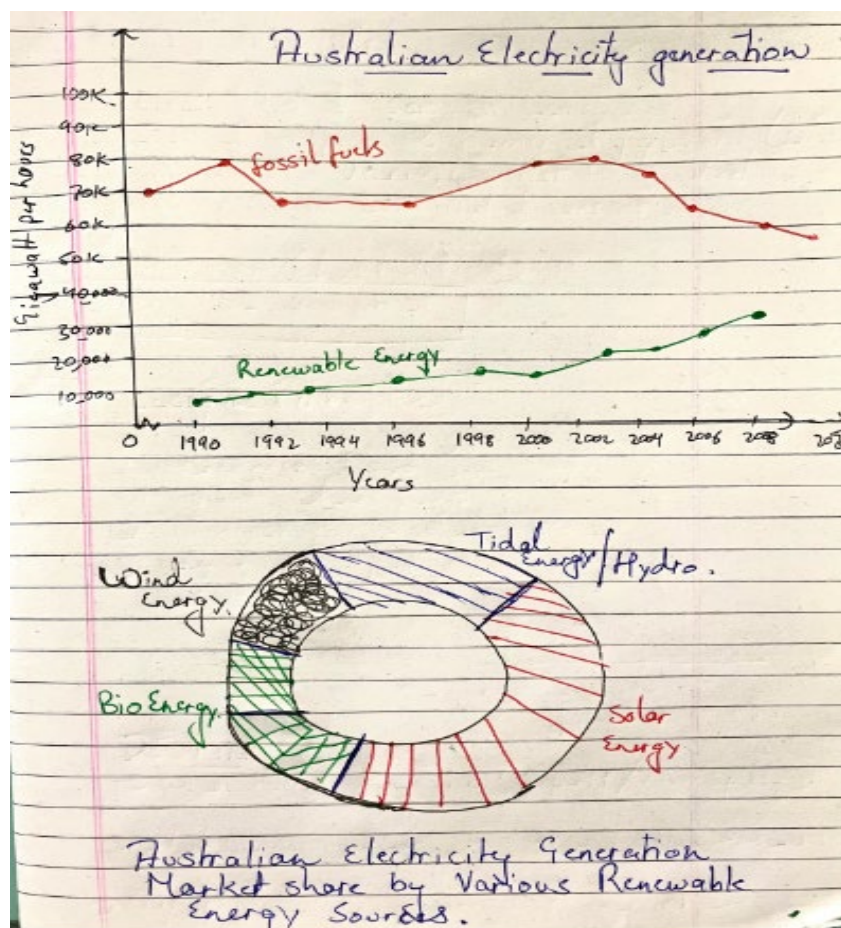 Australian Electricity generation
100K
90K
80K
70K
60K
50K
40,000
30,000
20,000
10,000
Gigawatt per hours
fossil fuels
Renewable Energy
0 1990 1992 1994 1996 1998 2000 2002 2004 2006 2008
Years
Tidal
Energy/Hydro.
Wind
Energy.
Bio Energy.
Solar
Energy
Australian Electricity Generation
Market share by Various Renewable
Energy Sources.